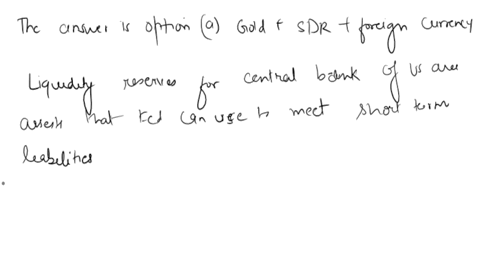 The answer is option (a) Gold + SDR + foreign currency
Liquidity reserves for central bank of US are
assets that Fed can use to meet short term
leabelities